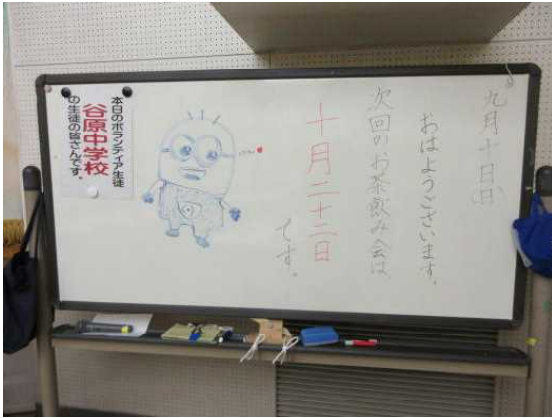 九月十日(日)
おはようございます。
次回のお茶飲み会は
十月二十二日
です。
本日のボランティア生徒
谷原中学校
の生徒の皆さんです。